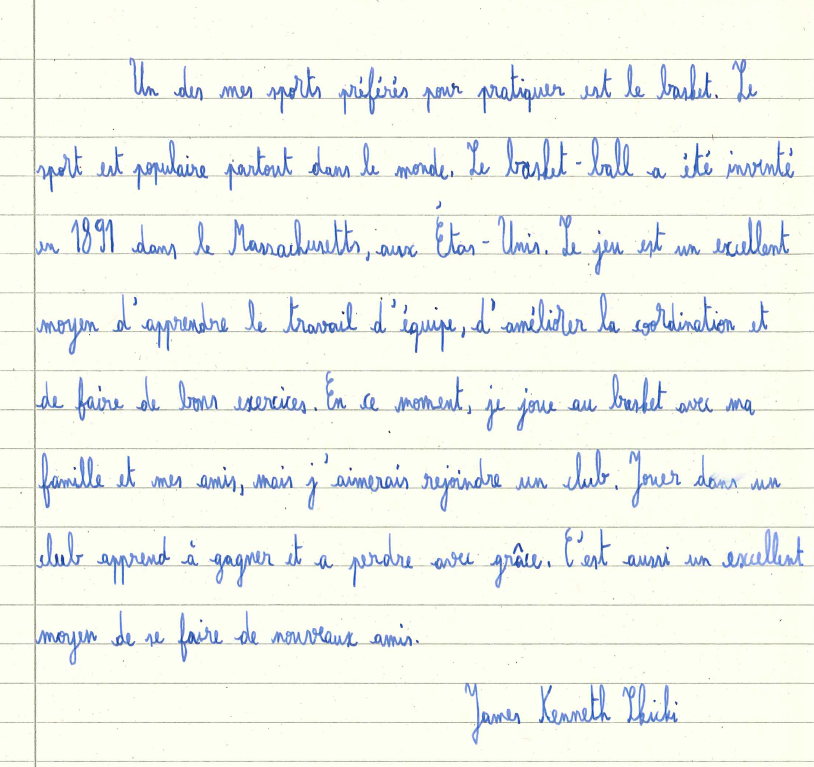 Un des mes sports préférés pour pratiquer est le basket. Le
sport est populaire partout dans le monde. Le basket-ball a été inventé
en 1891 dans le Massachusetts, aux Étas-Unis. Le jeu est un excellent
moyen d'apprendre le travail d'équipe, d'améliorer la coordination et
de faire de bons exercices. En ce moment, je joue au basket avec ma
famille et mes amis, mais j'aimerais rejoindre un club. Jouer dans un
club apprend à gagner et a perdre avec grâce. C'est aussi un excellent
moyen de se faire de nouveaux amis.
James Kenneth